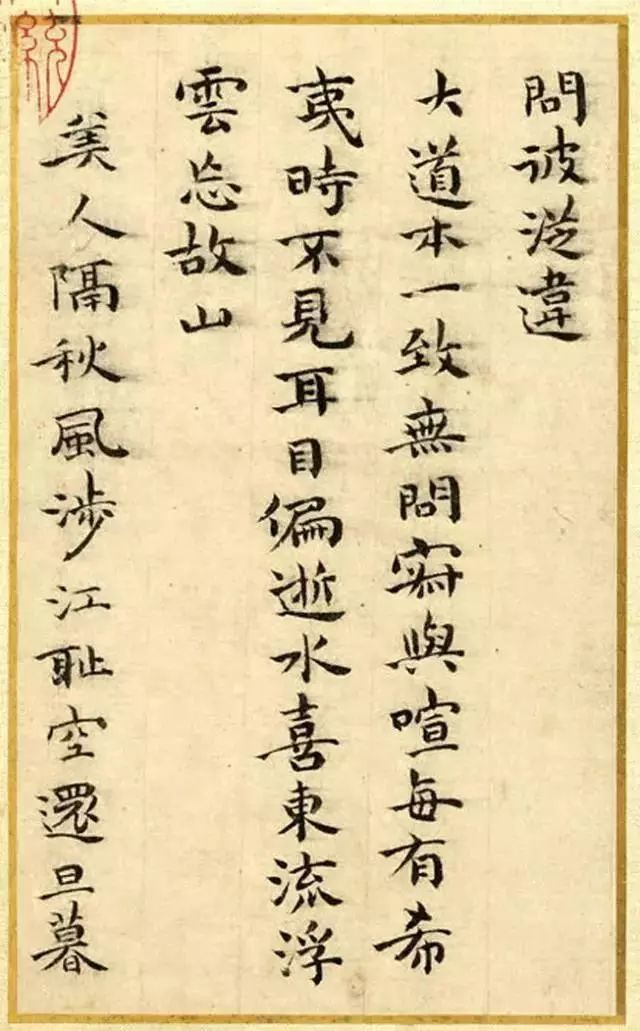 問彼從違
大道本一致無問寂與喧每有希
夷時不見耳目偏逝水喜東流浮
雲忘故山
美人隔秋風涉江耻空還旦暮